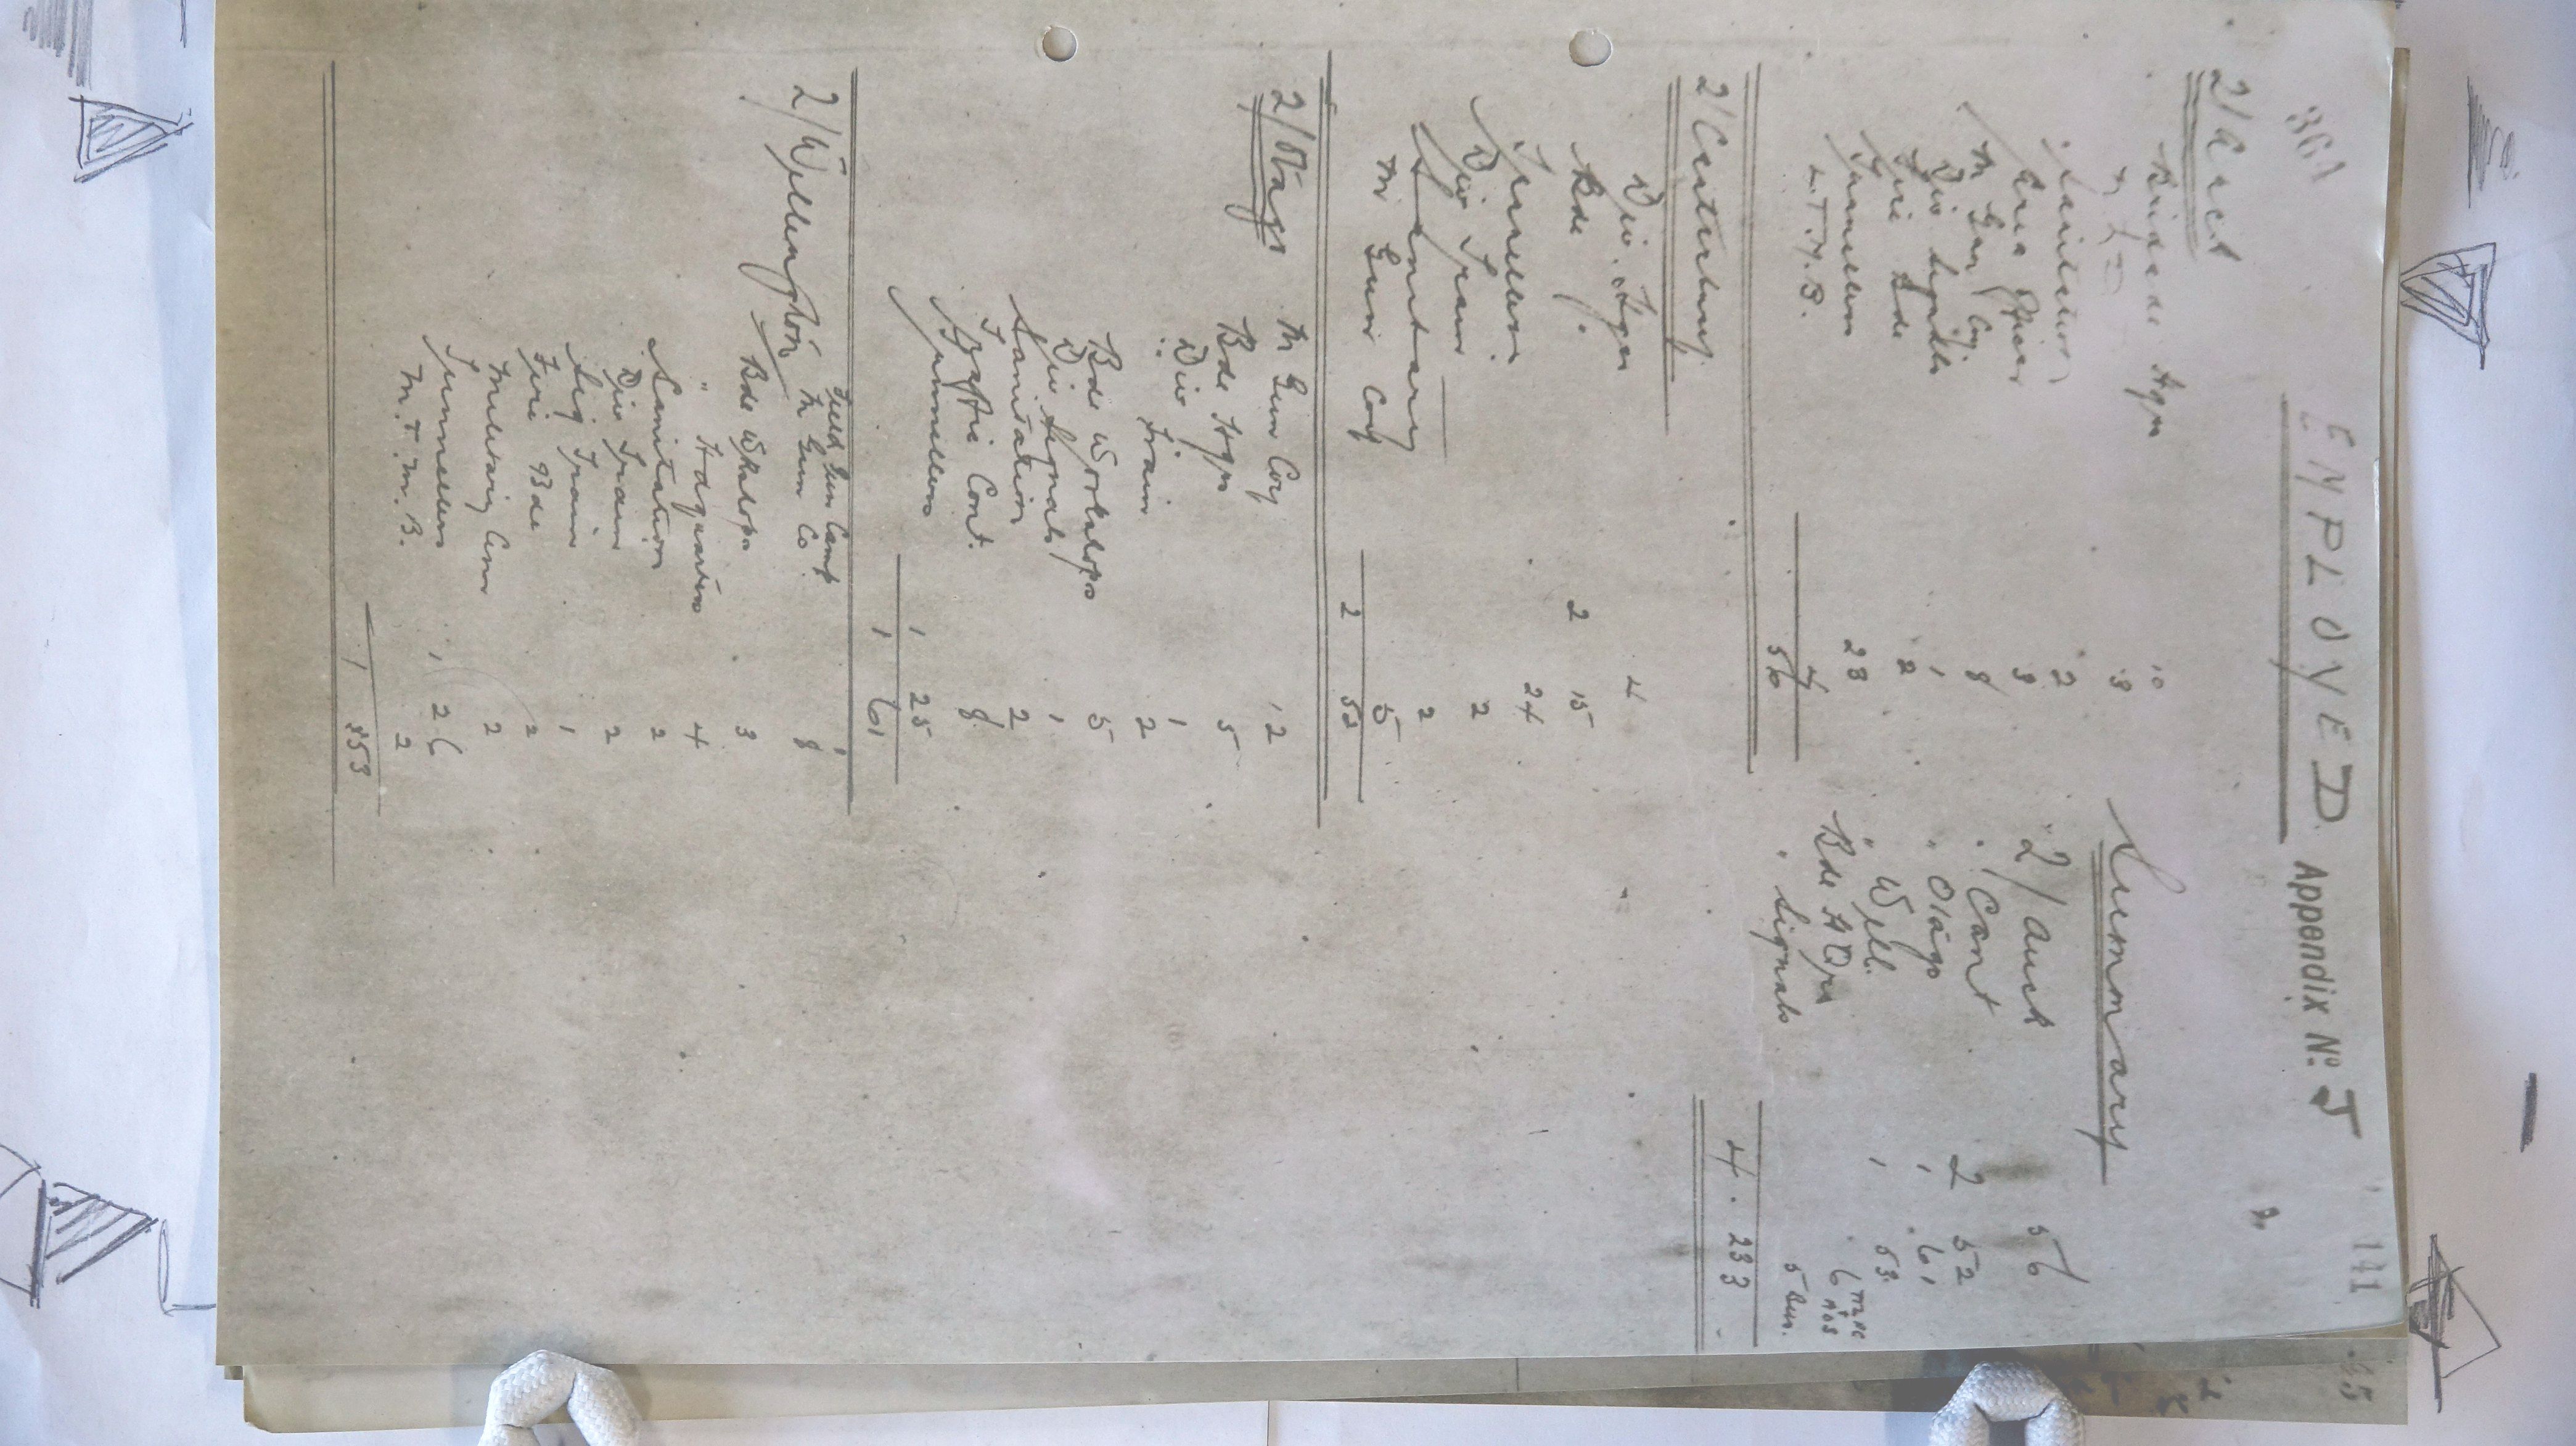 361
111
EMPLOYED Appendix No. J
2/Auck
Brigade Hqrs 10
3
Sanitation 2
Area Officer 3
M Gun Coy 8
Div Signals 1
Fire Bde 2
Tunnellers 23
L.T.M.B. 4
56
2/Canterbury
Div. Hqrs 4
Bde. 2 15
Tunnellers 24
Div Train 2
Sanitary 2
M Gun Coy 5
2 52
2/Otago
M Gun Coy 12
Bde Hqrs 5
Div. 1
" Train 2
Bde Workshops 5
Div Signals 1
Sanitation 2
Traffic Cont. 8
Tunnellers 1 25
1 61
2/Wellington
Field Gun Camp 1
M Gun Co 8
Bde Wkshops 3
" Hdquarters 4
Sanitation 2
Div Train 2
Sig Train 1
Fire Bde 2
Military Conr 2
Tunnellers 1 26
M.T.M.B. 2
1 53
Summary
2/Auck 56
" Cant 2 52
" Otago 1 61
" Well. 1 53
Bde HQrs 6
" Signals 5
4 . 233